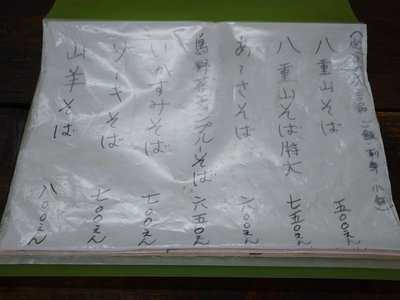 八重山そば 五〇〇えん
八重山そば特大 七五〇えん
あーさそば 六〇〇えん
島野菜 そば 六五〇えん
いかすみそば 七〇〇えん
ソーキそば 七〇〇えん
山羊そば 八〇〇えん